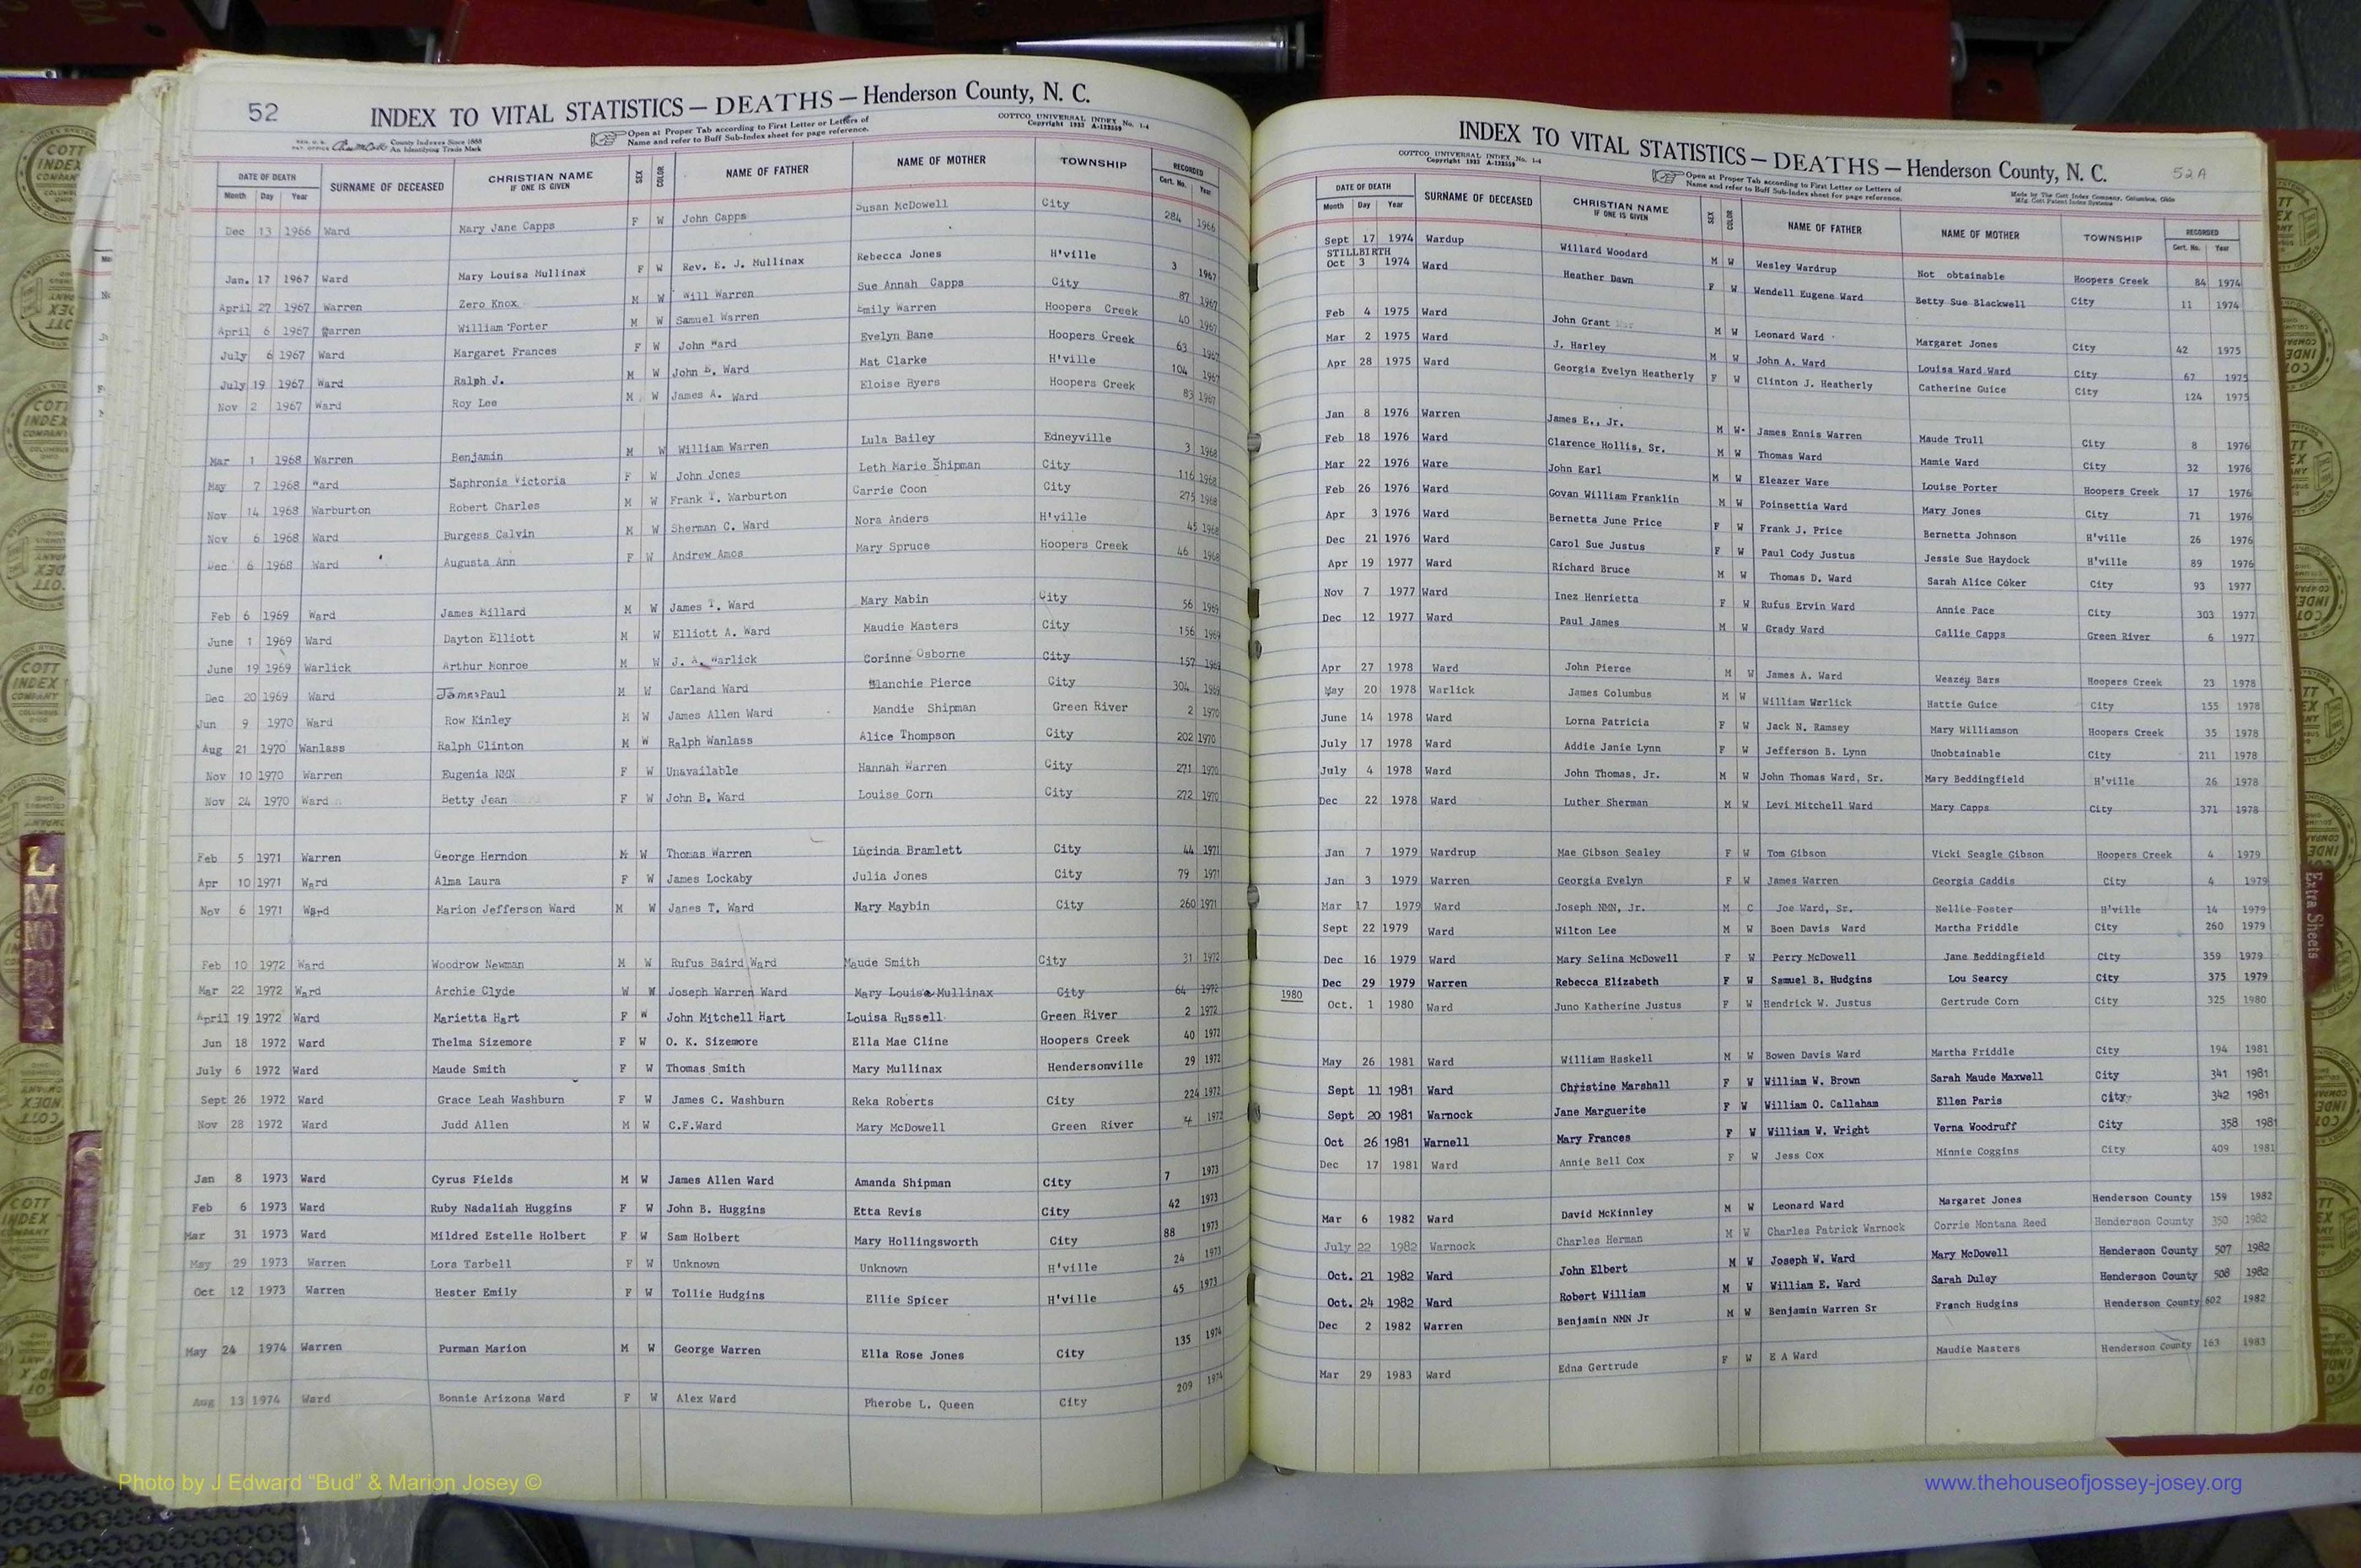 52
INDEX TO VITAL STATISTICS — DEATHS — Henderson County, N. C.
County Indexes Since 1888
An Identifying Trade Mark
Open at Proper Tab according to First Letter or Letters of
Name and refer to Buff Sub-Index sheet for page reference.
COTTCO UNIVERSAL INDEX No. 1-4
Copyright 1933 A-123559
DATE OF DEATH SURNAME OF DECEASED CHRISTIAN NAME IF ONE IS GIVEN SEX COLOR NAME OF FATHER NAME OF MOTHER TOWNSHIP RECORDED
Month Day Year Cert. No. Year
Dec 13 1966 Ward Mary Jane Capps F W John Capps Susan McDowell City 284 1966
Jan. 17 1967 Ward Mary Louisa Mullinax F W Rev. E. J. Mullinax Rebecca Jones H'ville 3 1967
April 27 1967 Warren Zero Knox M W Will Warren Sue Annah Capps City 87 1967
April 6 1967 Warren William Porter M W Samuel Warren Emily Warren Hoopers Creek 40 1967
July 6 1967 Ward Margaret Frances F W John Ward Evelyn Bane Hoopers Creek 63 1967
July 19 1967 Ward Ralph J. M W John Ward Mat Clarke H'ville 104 1967
Nov 2 1967 Ward Roy Lee M W James A. Ward Eloise Byers Hoopers Creek 83 1967
Mar 1 1968 Warren Benjamin M W William Warren Lula Bailey Edneyville 3 1968
May 7 1968 Ward Saphronia Victoria F W John Jones Leth Marie Shipman City 116 1968
Nov 14 1968 Warburton Robert Charles M W Frank T. Warburton Carrie Coon City 275 1968
Nov 6 1968 Ward Burgess Calvin M W Sherman C. Ward Nora Anders H'ville 45 1968
Dec 6 1968 Ward Augusta Ann F W Andrew Amos Mary Spruce Hoopers Creek 46 1968
Feb 6 1969 Ward James Millard M W James T. Ward Mary Mabin City 56 1969
June 1 1969 Ward Dayton Elliott M W Elliott A. Ward Maudie Masters City 156 1969
June 19 1969 Warlick Arthur Monroe M W J. A. Warlick Corinne Osborne City 157 1969
Dec 20 1969 Ward James Paul M W Garland Ward Blanchie Pierce City 304 1969
Jun 9 1970 Ward Row Kinley M W James Allen Ward Mandie Shipman Green River 2 1970
Aug 21 1970 Wanlass Ralph Clinton M W Ralph Wanlass Alice Thompson City 202 1970
Nov 10 1970 Warren Eugenia NMN F W Unavailable Hannah Warren City 271 1970
Nov 24 1970 Ward Betty Jean F W John B. Ward Louise Corn City 272 1970
Feb 5 1971 Warren George Herndon M W Thomas Warren Lucinda Bramlett City 44 1971
Apr 10 1971 Ward Alma Laura F W James Lockaby Julia Jones City 79 1971
Nov 6 1971 Ward Marion Jefferson Ward M W James T. Ward Mary Maybin City 260 1971
Feb 10 1972 Ward Woodrow Newman M W Rufus Baird Ward Maude Smith City 31 1972
Mar 22 1972 Ward Archie Clyde W W Joseph Warren Ward Mary Louise Mullinax City 64 1972
April 19 1972 Ward Marietta Hart F W John Mitchell Hart Louisa Russell Green River 2 1972
Jun 18 1972 Ward Thelma Sizemore F W O. K. Sizemore Ella Mae Cline Hoopers Creek 40 1972
July 6 1972 Ward Maude Smith F W Thomas Smith Mary Mullinax Hendersonville 29 1972
Sept 26 1972 Ward Grace Leah Washburn F W James C. Washburn Reka Roberts City 224 1972
Nov 28 1972 Ward Judd Allen M W C.F.Ward Mary McDowell Green River 4 1972
Jan 8 1973 Ward Cyrus Fields M W James Allen Ward Amanda Shipman City 7 1973
Feb 6 1973 Ward Ruby Nadaliah Huggins F W John B. Huggins Etta Revis City 42 1973
Mar 31 1973 Ward Mildred Estelle Holbert F W Sam Holbert Mary Hollingsworth City 88 1973
May 29 1973 Warren Lora Tarbell F W Unknown Unknown H'ville 24 1973
Oct 12 1973 Warren Hester Emily F W Tollie Hudgins Ellie Spicer H'ville 45 1973
May 24 1974 Warren Purman Marion M W George Warren Ella Rose Jones City 135 1974
Aug 13 1974 Ward Bonnie Arizona Ward F W Alex Ward Pherobe L. Queen City 209 1974
INDEX TO VITAL STATISTICS — DEATHS — Henderson County, N. C.
52A
COTTCO UNIVERSAL INDEX No. 1-4
Copyright 1933 A-123559
Open at Proper Tab according to First Letter or Letters of
Name and refer to Buff Sub-Index sheet for page reference.
Made by The Cott Index Company, Columbus, Ohio
Mfg. Cott Patent Index Systems
DATE OF DEATH SURNAME OF DECEASED CHRISTIAN NAME IF ONE IS GIVEN SEX COLOR NAME OF FATHER NAME OF MOTHER TOWNSHIP RECORDED
Month Day Year Cert. No. Year
Sept 17 1974 Wardup Willard Woodard M W Wesley Wardrup Not obtainable Hoopers Creek 84 1974
STILLBIRTH
Oct 3 1974 Ward Heather Dawn F W Wendell Eugene Ward Betty Sue Blackwell City 11 1974
Feb 4 1975 Ward John Grant M W Leonard Ward Margaret Jones City 42 1975
Mar 2 1975 Ward J. Harley M W John A. Ward Louisa Ward Ward City 67 1975
Apr 28 1975 Ward Georgia Evelyn Heatherly F W Clinton J. Heatherly Catherine Guice City 124 1975
Jan 8 1976 Warren James E., Jr. M W James Ennis Warren Maude Trull City 8 1976
Feb 18 1976 Ward Clarence Hollis, Sr. M W Thomas Ward Mamie Ward City 32 1976
Mar 22 1976 Ware John Earl M W Eleazer Ware Louise Porter Hoopers Creek 17 1976
Feb 26 1976 Ward Govan William Franklin M W Poinsettia Ward Mary Jones City 71 1976
Apr 3 1976 Ward Bernetta June Price F W Frank J. Price Bernetta Johnson H'ville 26 1976
Dec 21 1976 Ward Carol Sue Justus F W Paul Cody Justus Jessie Sue Haydock H'ville 89 1976
Apr 19 1977 Ward Richard Bruce M W Thomas D. Ward Sarah Alice Coker City 93 1977
Nov 7 1977 Ward Inez Henrietta F W Rufus Ervin Ward Annie Pace City 303 1977
Dec 12 1977 Ward Paul James M W Grady Ward Callie Capps Green River 6 1977
Apr 27 1978 Ward John Pierce M W James A. Ward Weazey Bars Hoopers Creek 23 1978
May 20 1978 Warlick James Columbus M W William Warlick Hattie Guice City 155 1978
June 14 1978 Ward Lorna Patricia F W Jack N. Ramsey Mary Williamson Hoopers Creek 35 1978
July 17 1978 Ward Addie Janie Lynn F W Jefferson B. Lynn Unobtainable City 211 1978
July 4 1978 Ward John Thomas, Jr. M W John Thomas Ward, Sr. Mary Beddingfield H'ville 26 1978
Dec 22 1978 Ward Luther Sherman M W Levi Mitchell Ward Mary Capps City 371 1978
Jan 7 1979 Wardrup Mae Gibson Sealey F W Tom Gibson Vicki Seagle Gibson Hoopers Creek 4 1979
Jan 3 1979 Warren Georgia Evelyn F W James Warren Georgia Gaddis City 4 1979
Mar 17 1979 Ward Joseph NMN, Jr. M C Joe Ward, Sr. Nellie Foster H'ville 14 1979
Sept 22 1979 Ward Wilton Lee M W Boen Davis Ward Martha Friddle City 260 1979
Dec 16 1979 Ward Mary Selina McDowell F W Perry McDowell Jane Beddingfield City 359 1979
Dec 29 1979 Warren Rebecca Elizabeth F W Samuel B. Hudgins Lou Searcy City 375 1979
1980
Oct. 1 1980 Ward Juno Katherine Justus F W Hendrick W. Justus Gertrude Corn City 325 1980
May 26 1981 Ward William Haskell M W Bowen Davis Ward Martha Friddle City 194 1981
Sept 11 1981 Ward Christine Marshall F W William W. Brown Sarah Maude Maxwell City 341 1981
Sept 20 1981 Warnock Jane Marguerite F W William O. Callaham Ellen Paris City 342 1981
Oct 26 1981 Warnell Mary Frances F W William W. Wright Verna Woodruff City 358 1981
Dec 17 1981 Ward Annie Bell Cox F W Jess Cox Minnie Coggins City 409 1981
Mar 6 1982 Ward David McKinnley M W Leonard Ward Margaret Jones Henderson County 159 1982
July 22 1982 Warnock Charles Herman M W Charles Patrick Warnock Corrie Montana Reed Henderson County 350 1982
Oct. 21 1982 Ward John Elbert M W Joseph W. Ward Mary McDowell Henderson County 507 1982
Oct. 24 1982 Ward Robert William M W William E. Ward Sarah Duley Henderson County 508 1982
Dec 2 1982 Warren Benjamin NMN Jr M W Benjamin Warren Sr Franch Hudgins Henderson County 602 1982
Mar 29 1983 Ward Edna Gertrude F W E A Ward Maudie Masters Henderson County 163 1983
Extra Sheets
Photo by J Edward "Bud" & Marion Josey ©
www.thehouseofjossey-josey.org